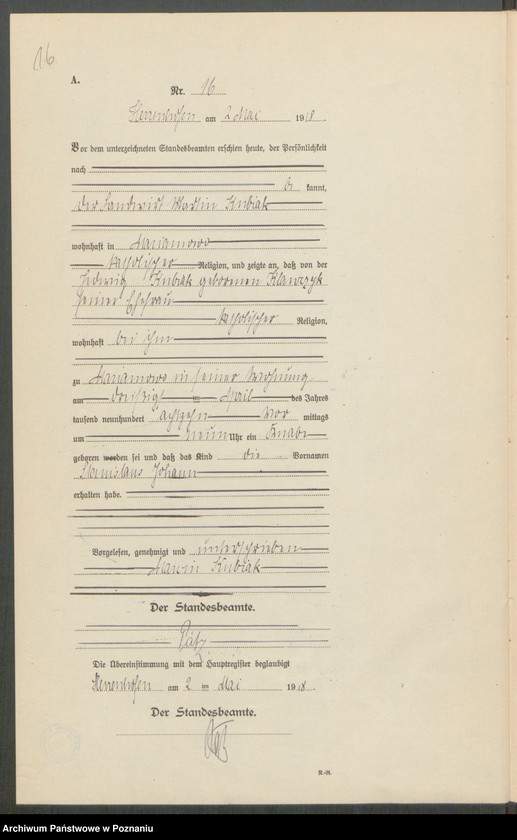 16
A.
Nr. 16
Herrenhofen am 2 Mai 1918.
Vor dem unterzeichneten Standesbeamten erschien heute, der Persönlichkeit
nach
be kannt,
der Landwirt Martin Kubiak
wohnhaft in Marianowo
katholischer Religion, und zeigte an, daß von der
Hedwig Kubiak geborenen Klawczyk
seiner Ehefrau
katholischer Religion,
wohnhaft bei ihm
zu Marianowo in seiner Wohnung
am dreißigsten April des Jahres
tausend neunhundert achtzehn Vor mittags
um neun Uhr ein Knabe
geboren worden sei und daß das Kind die Vornamen
Stanislaus Johann
erhalten habe.
Vorgelesen, genehmigt und unterschrieben
Marcin Kubiak
Der Standesbeamte.
Die Übereinstimmung mit dem Hauptregister beglaubigt
Herrenhofen am 2 ten Mai 1918.
Der Standesbeamte.
Archiwum Państwowe w Poznaniu